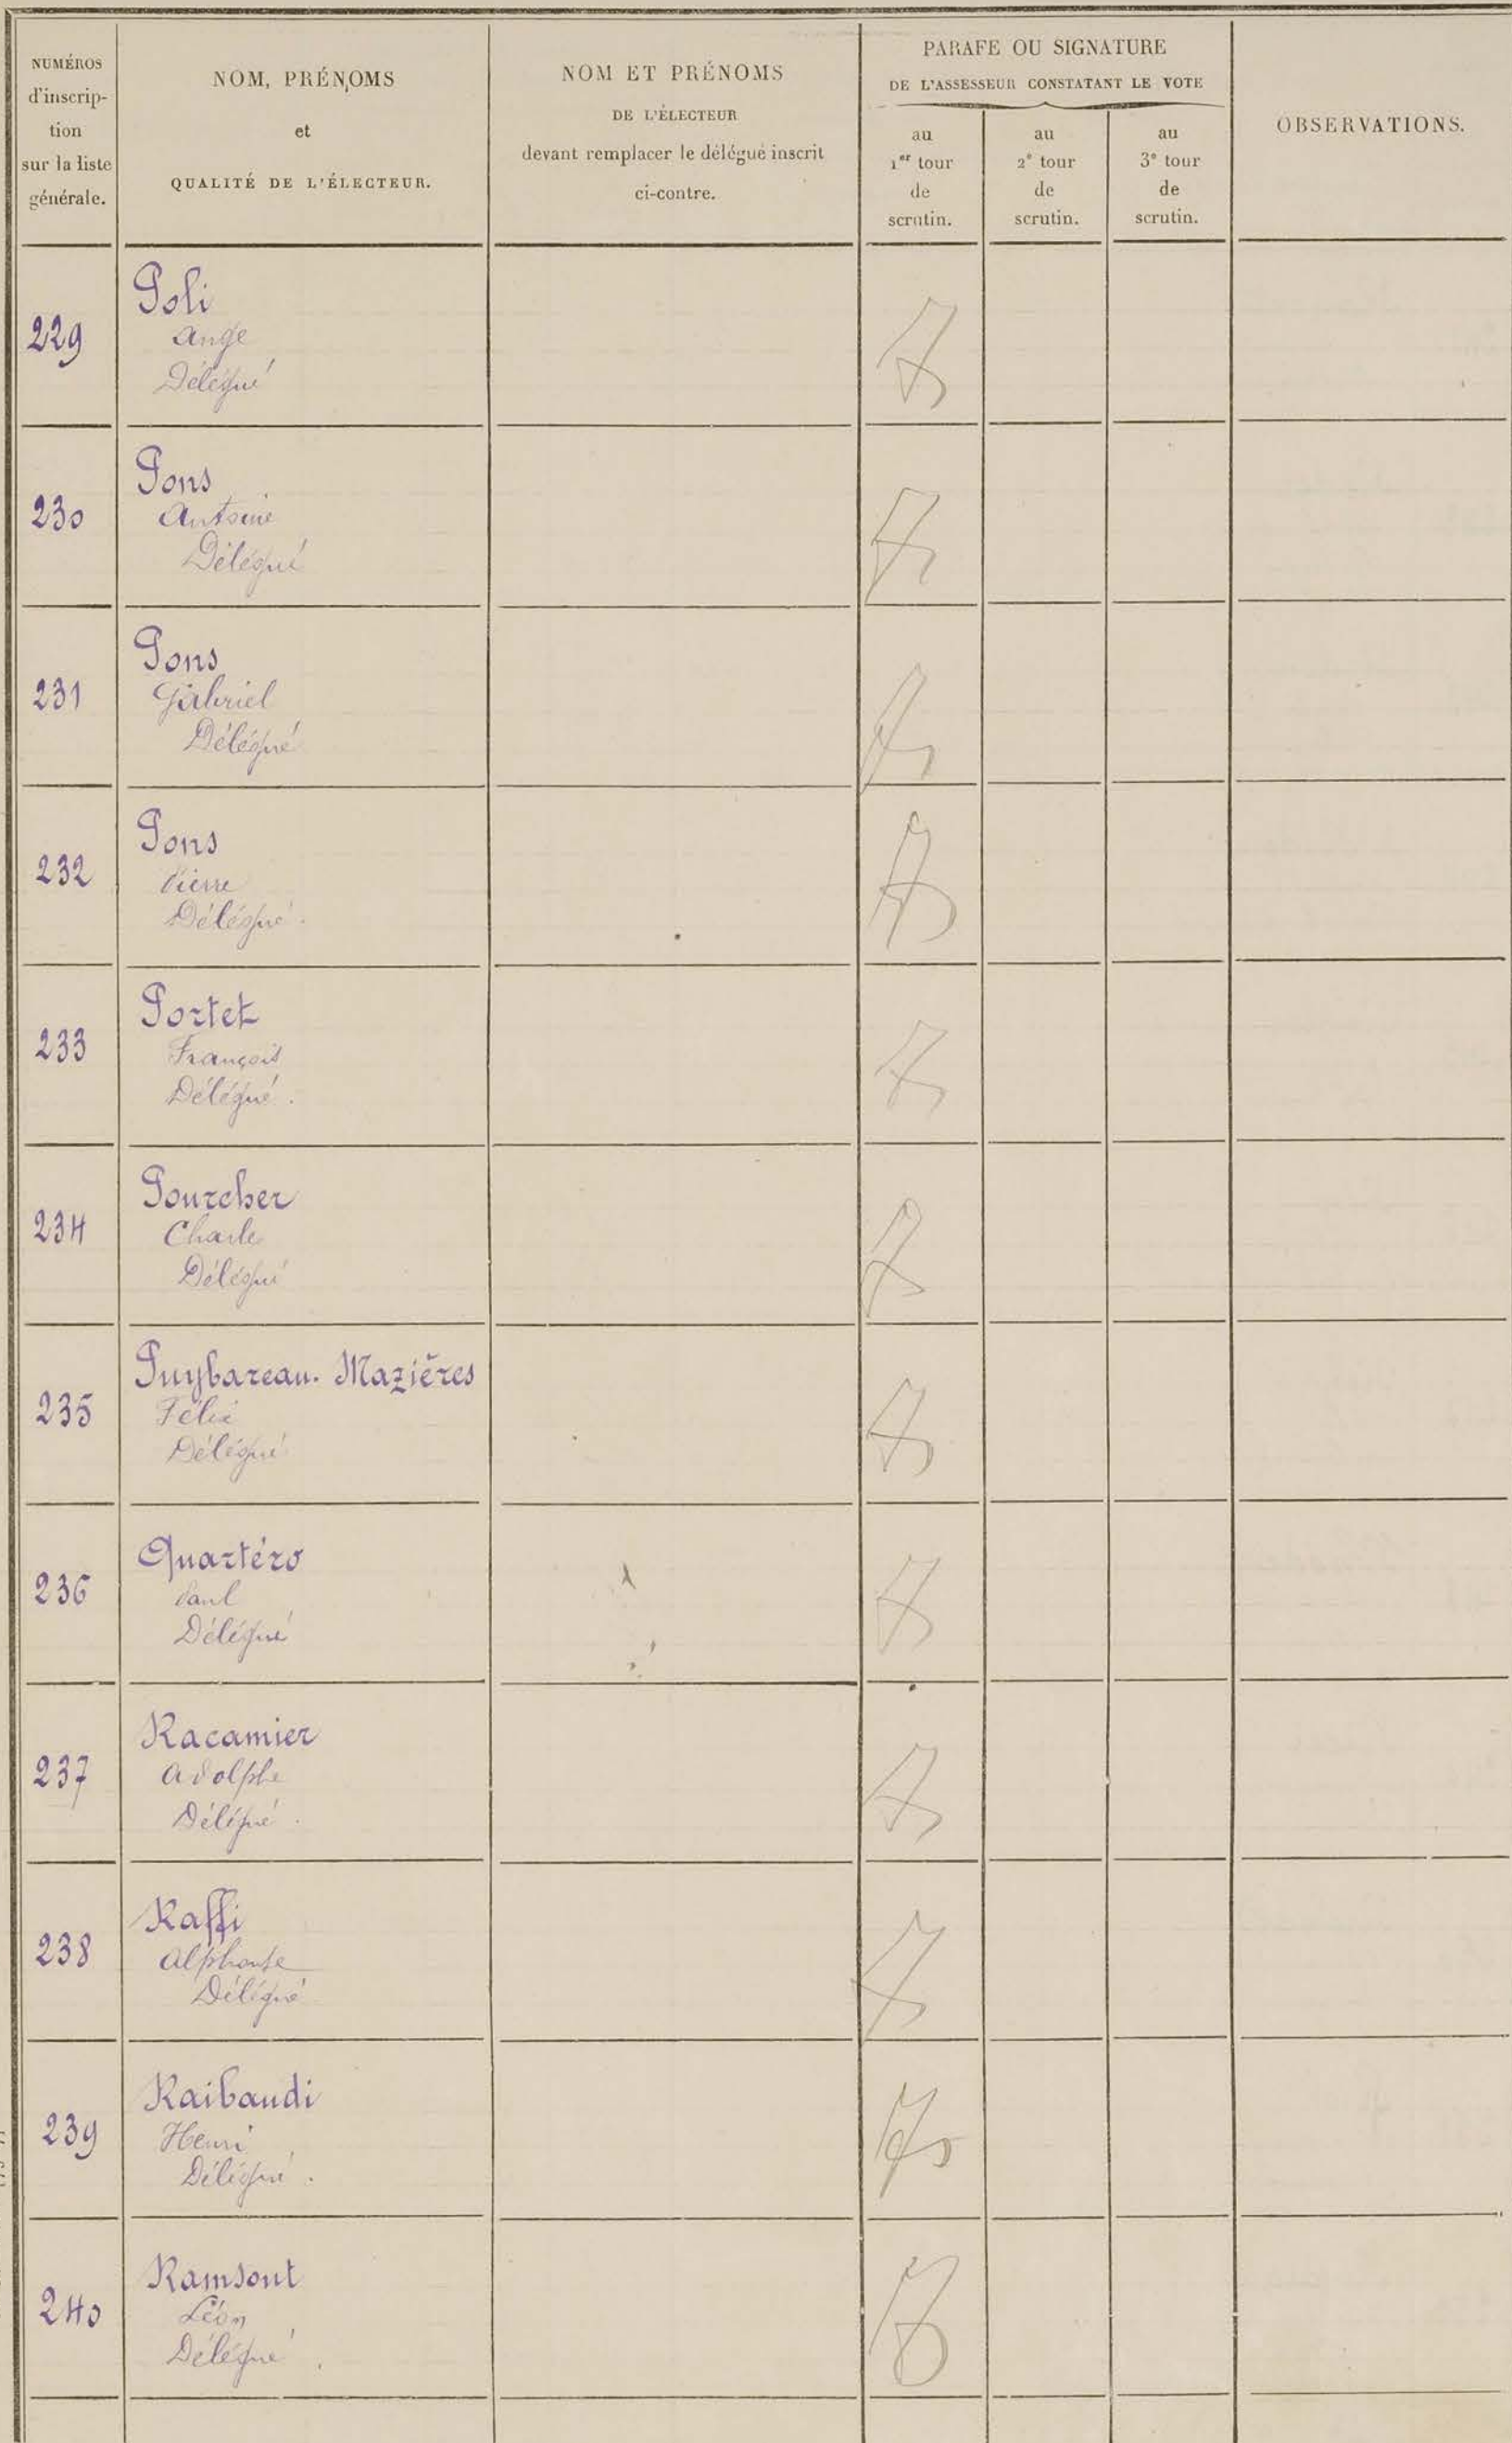 NUMÉROS
d'inscrip-
tion
sur la liste
générale.
NOM, PRÉNOMS
et
QUALITÉ DE L'ÉLECTEUR.
NOM ET PRÉNOMS
DE L'ÉLECTEUR
devant remplacer le délégué inscrit
ci-contre.
PARAFE OU SIGNATURE
DE L'ASSESSEUR CONSTATANT LE VOTE
au
1er tour
de
scrutin.
au
2e tour
de
scrutin.
au
3e tour
de
scrutin.
OBSERVATIONS.
229
Poli
Ange
Délégué
230
Pons
Antoine
Délégué
231
Pons
Gabriel
Délégué
232
Pons
Pierre
Délégué.
233
Portet
François
Délégué.
234
Pourcher
Charle
Délégué
235
Puybareau. Mazières
Félix
Délégué
236
Quartéro
Paul
Délégué
237
Racamier
Adolphe
Délégué.
238
Raffi
Alphonse
Délégué
239
Raibaudi
Henri
Délégué.
240
Ramsout
Léon
Délégué.